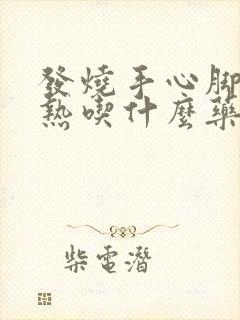 發燒手心腳
熱喫什麼藥
柴電潛